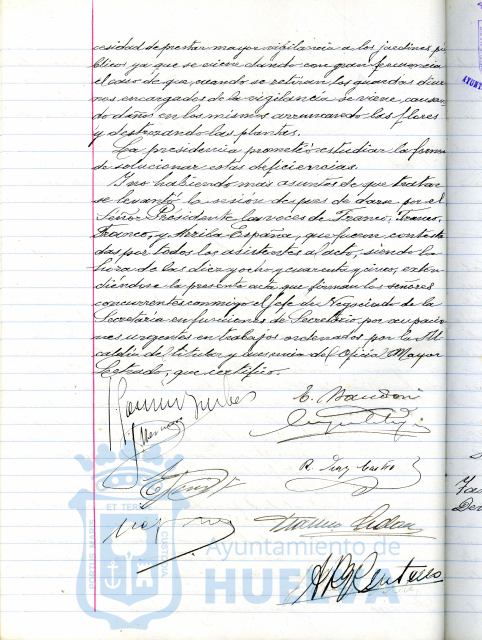 cesidad de prestar mayor vigilancia a los jardines pú
blicos ya que se viene dando con gran frecuencia
el caso de que, cuando se retiran los guardas diur
nos encargados de la vigilancia se viene causan
do daños en los mismos arrancando las flores
y destrozando las plantas.
La presidencia prometió estudiar la forma
de solucionar estas deficiencias.
Y no habiendo más asuntos de que tratar
se levantó la sesión despues de darse por el
Señor Presidente las voces de Franco, Franco,
Franco, y Arriba España, que fueron contesta
das por todos los asistentes al acto, siendo la
hora de las diez y ocho y cuarenta y cinco, exten
diéndose la presente acta que firman los señores
concurrentes conmigo el Jefe de Negociado de la
Secretaría en funciones de Secretario, por
urgentes en trabajos ordenados por la Al
caldía del titular y ausencia del Oficial Mayor
Letrado, que certifico.
ET TERRÆ
PORTUS MARIS
CUSTODIA
Ayuntamiento de
HUELVA